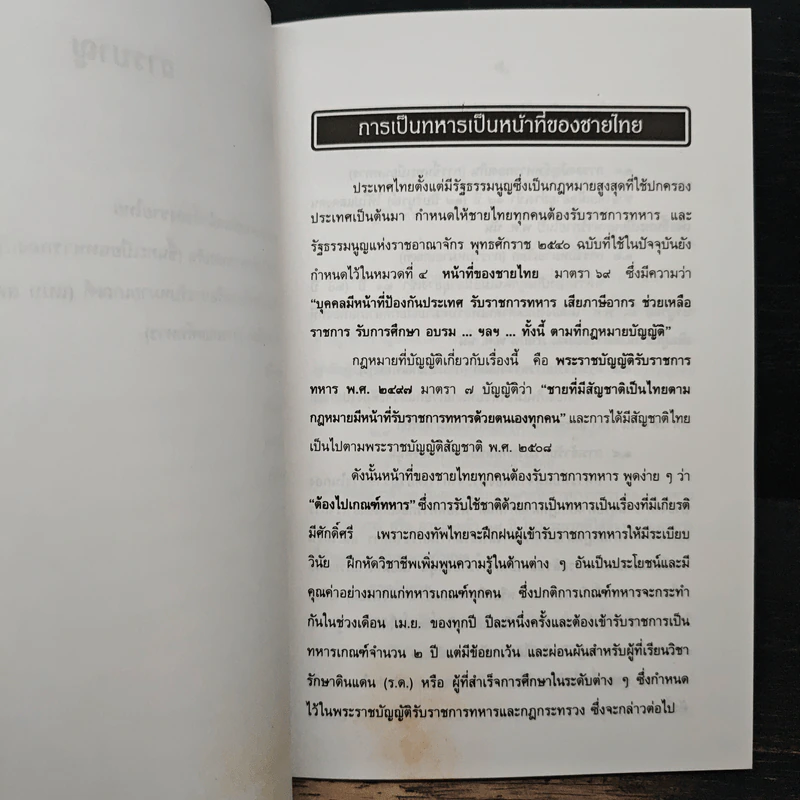 สารบาญ
การเป็นทหารเป็นหน้าที่ของชายไทย
ประเทศไทยตั้งแต่มีรัฐธรรมนูญซึ่งเป็นกฎหมายสูงสุดที่ใช้ปกครอง
ประเทศเป็นต้นมา กำหนดให้ชายไทยทุกคนต้องรับราชการทหาร และ
รัฐธรรมนูญแห่งราชอาณาจักร พุทธศักราช ๒๕๔๐ ฉบับที่ใช้ในปัจจุบันยัง
กำหนดไว้ในหมวดที่ ๔ หน้าที่ของชายไทย มาตรา ๖๙ ซึ่งมีความว่า
“บุคคลมีหน้าที่ป้องกันประเทศ รับราชการทหาร เสียภาษีอากร ช่วยเหลือ
ราชการ รับการศึกษา อบรม ... ฯลฯ ... ทั้งนี้ ตามที่กฎหมายบัญญัติ”
กฎหมายที่บัญญัติเกี่ยวกับเรื่องนี้ คือ พระราชบัญญัติรับราชการ
ทหาร พ.ศ. ๒๔๙๗ มาตรา ๗ บัญญัติว่า “ชายที่มีสัญชาติเป็นไทยตาม
กฎหมายมีหน้าที่รับราชการทหารด้วยตนเองทุกคน” และการได้มีสัญชาติไทย
เป็นไปตามพระราชบัญญัติสัญชาติ พ.ศ. ๒๕๐๘
ดังนั้นหน้าที่ของชายไทยทุกคนต้องรับราชการทหาร พูดง่าย ๆ ว่า
“ต้องไปเกณฑ์ทหาร” ซึ่งการรับใช้ชาติด้วยการเป็นทหารเป็นเรื่องที่มีเกียรติ
มีศักดิ์ศรี เพราะกองทัพไทยจะฝึกฝนผู้เข้ารับราชการทหารให้มีระเบียบ
วินัย ฝึกหัดวิชาชีพเพิ่มพูนความรู้ในด้านต่าง ๆ อันเป็นประโยชน์และมี
คุณค่าอย่างมากแก่ทหารเกณฑ์ทุกคน ซึ่งปกติการเกณฑ์ทหารจะกระทำ
กันในช่วงเดือน เม.ย. ของทุกปี ปีละหนึ่งครั้งและต้องเข้ารับราชการเป็น
ทหารเกณฑ์จำนวน ๒ ปี แต่มีข้อยกเว้น และผ่อนผันสำหรับผู้ที่เรียนวิชา
รักษาดินแดน (ร.ด.) หรือ ผู้ที่สำเร็จการศึกษาในระดับต่าง ๆ ซึ่งกำหนด
ไว้ในพระราชบัญญัติรับราชการทหารและกฎกระทรวง ซึ่งจะกล่าวต่อไป